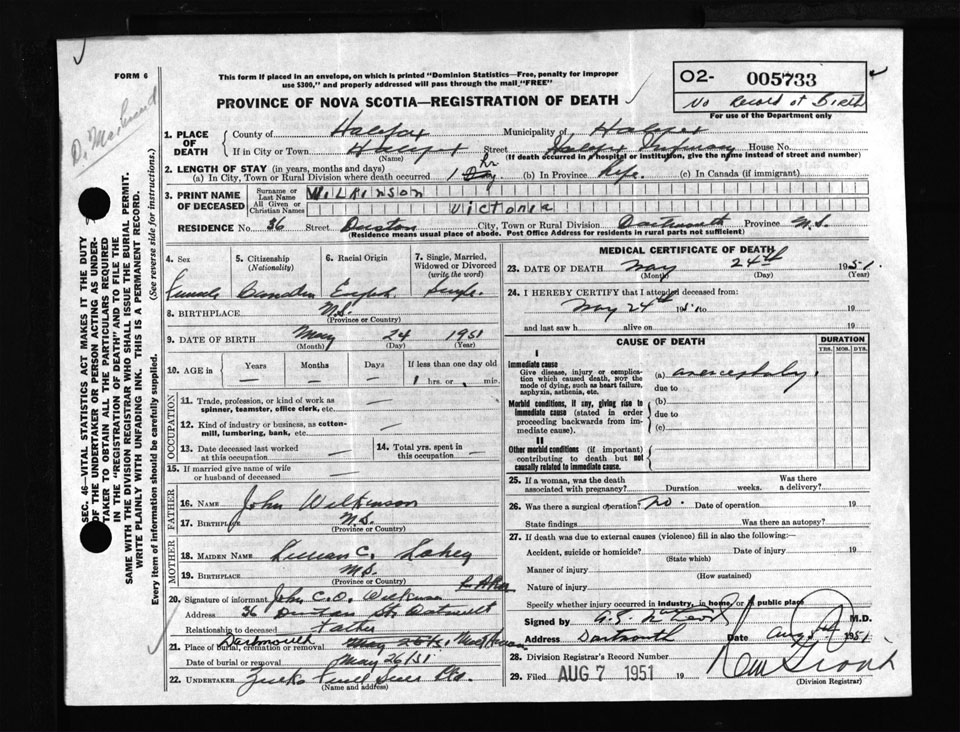 FORM 6
This form if placed in an envelope, on which is printed "Dominion Statistics—Free, penalty for improper
use $300," and properly addressed will pass through the mail "FREE"
O2- 005733
No Record of Birth
For use of the Department only
PROVINCE OF NOVA SCOTIA—REGISTRATION OF DEATH
1. PLACE OF DEATH
County of Halifax Municipality of Halifax
If in City or Town Halifax Street Halifax Infirmary House No.
(Name) (If death occurred in a hospital or institution, give the name instead of street and number)
2. LENGTH OF STAY (in years, months and days)
(a) In City, Town or Rural Division where death occurred 1 Day hr (b) In Province Life. (c) In Canada (if immigrant)
3. PRINT NAME OF DECEASED
Surname or Last Name WILKINSON
All Given or Christian Names Victoria
RESIDENCE No. 36 Street City, Town or Rural Division Dartmouth Province N.S.
(Residence means usual place of abode. Post Office Address for residents in rural parts not sufficient)
4. Sex 5. Citizenship (Nationality) 6. Racial Origin 7. Single, Married, Widowed or Divorced (write the word)
Female Canadian English Single.
8. BIRTHPLACE N.S.
(Province or Country)
9. DATE OF BIRTH May 24 1951
(Month) (Day) (Year)
10. AGE in Years Months Days If less than one day old
— — — 1 hrs. or min.
OCCUPATION
11. Trade, profession, or kind of work as
spinner, teamster, office clerk, etc. —
12. Kind of industry or business, as cotton-
mill, lumbering, bank, etc. —
13. Date deceased last worked at this occupation — 14. Total yrs. spent in this occupation —
15. If married give name of wife
or husband of deceased —
FATHER
16. NAME John Wilkinson
17. BIRTHPLACE N.S.
(Province or Country)
MOTHER
18. MAIDEN NAME Lillian C. Lahey
19. BIRTHPLACE N.S.
(Province or Country)
20. Signature of informant John C.O. Wilkinson
Address 36 St. Dartmouth
Relationship to deceased Father
Dartmouth
21. Place of burial, cremation or removal May 26/51
Date of burial or removal May 26/51
22. UNDERTAKER Ltd.
(Name and address)
MEDICAL CERTIFICATE OF DEATH
23. DATE OF DEATH May 24th 1951
(Month) (Day)
24. I HEREBY CERTIFY that I attended deceased from:
May 24th 1951 to 19
and last saw h alive on 19
CAUSE OF DEATH DURATION
YRS. MOS. DYS.
I
Immediate cause
Give disease, injury or complica-
tion which caused death, not the
mode of dying, such as heart failure,
asphyxia, asthenia, etc.
(a) anencephaly.
due to
Morbid conditions, if any, giving rise to
immediate cause (stated in order
proceeding backwards from im-
mediate cause).
(b)
due to
(c)
II
Other morbid conditions (if important)
contributing to death but not
causally related to immediate cause.
25. If a woman, was the death
associated with pregnancy? Duration weeks. Was there a delivery?
26. Was there a surgical operation? no. Date of operation 19
State findings Was there an autopsy?
27. If death was due to external causes (violence) fill in also the following:—
Accident, suicide or homicide? Date of injury 19
(State which)
Manner of injury
(How sustained)
Nature of injury
Specify whether injury occurred in industry, in home, or in public place
Signed by M.D.
Address Dartmouth Date Aug 1951
28. Division Registrar's Record Number
29. Filed AUG 7 1951 19
(Division Registrar)
SEC. 46—VITAL STATISTICS ACT MAKES IT THE DUTY
OF THE UNDERTAKER OR PERSON ACTING AS UNDER-
TAKER TO OBTAIN ALL THE PARTICULARS REQUIRED
IN THE "REGISTRATION OF DEATH" AND TO FILE THE
SAME WITH THE DIVISION REGISTRAR WHO SHALL ISSUE THE BURIAL PERMIT.
WRITE PLAINLY WITH UNFADING INK. THIS IS A PERMANENT RECORD.
Every item of information should be carefully supplied. (See reverse side for instructions.)